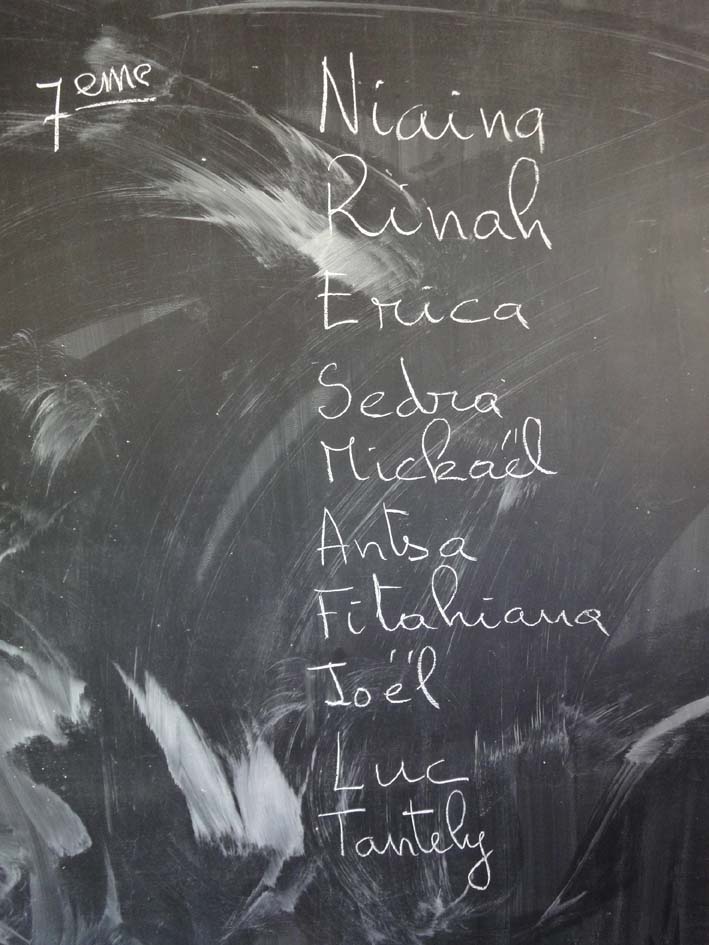 7eme
Niaina
Rinah
Erica
Sedra
Mickaël
Antsa
Fitahiana
Joël
Luc
Tantely